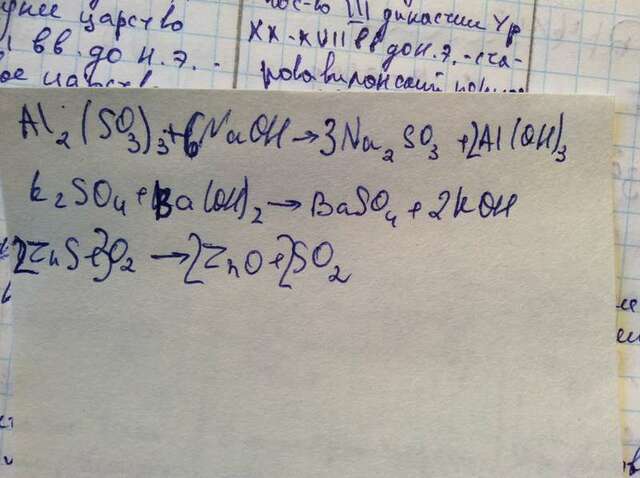 днее царство
вв. до н. э. -
XX-XVII вв до н. э. - ста-
ровавилонский
Al2(SO3)3+6NaOH→3Na2SO3+2Al(OH)3
K2SO4+Ba(OH)2→BaSO4+2KOH
2ZnS+3O2→2ZnO+2SO2